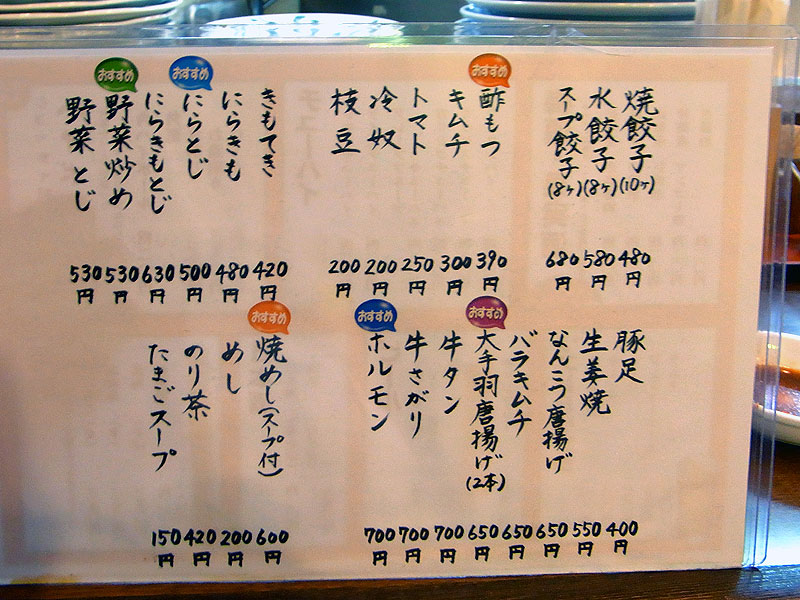 焼餃子(10ヶ) 480円
水餃子(8ヶ) 580円
スープ餃子(8ヶ) 680円
おすすめ
酢もつ 390円
キムチ 300円
トマト 250円
冷奴 200円
枝豆 200円
きもてき 420円
にらきも 480円
おすすめ
にらとじ 500円
にらきもとじ 630円
おすすめ
野菜炒め 530円
野菜とじ 530円
豚足 400円
生姜焼 550円
なんこつ唐揚げ 650円
バラキムチ 650円
おすすめ
大手羽唐揚げ(2本) 650円
牛タン 700円
牛さがり 700円
おすすめ
ホルモン 700円
おすすめ
焼めし(スープ付) 600円
めし 200円
のり茶 420円
たまごスープ 150円